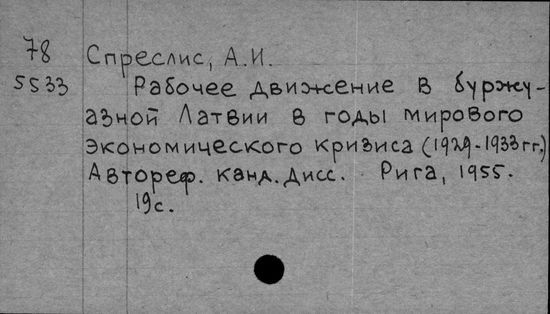 78 Спреслис, А.И.
5533 Рабочее движение в буржу-
азной Латвии в годы мирового
экономического кризиса (1929-1933 гг.)
Автореф. канд. дисс. Рига, 1955.
19с.